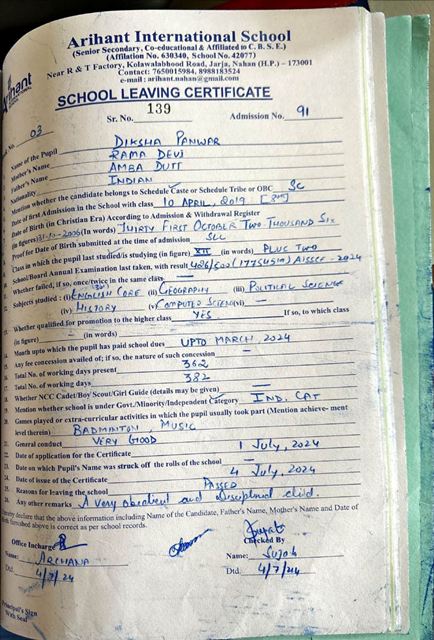 Arihant International School
(Senior Secondary, Co-educational & Affiliated to C. B. S. E.)
(Affilation No. 630340, School No. 42077)
Near R & T Factory, Kolawalabhood Road, Jarja, Nahan (H.P.) - 173001
Contact: 7650015984, 8988183524
e-mail : arihant.nahan@gmail.com
SCHOOL LEAVING CERTIFICATE
Sr. No. 139 Admission No. 91
No. 03
Name of the Pupil DIKSHA PANWAR
Name RAMA DEVI
Father's Name AMBA DUTT
Nationality INDIAN
Mention whether the candidate belongs to Schedule Caste or Schedule Tribe or OBC SC
Date of first Admission in the School with class 10 APRIL, 2019
Date of Birth (in Christian Era) According to Admission & Withdrawal Register
(in figures) 31-10-2006 (In Words) THIRTY FIRST OCTOBER TWO THOUSAND SIX
Proof for Date of Birth submitted at the time of admission SLC
Class in which the pupil last studied/is studying (in figure) XII (in words) PLUS TWO
School/Board Annual Examination last taken, with result 406/500 (17754510) AISSCE-2024
Whether failed, if so, once/twice in the same class —
Subjects studied : (i) ENGLISH CORE (ii) GEOGRAPHY (iii) POLITICAL SCIENCE
(iv) HISTORY (v) COMPUTER SCIENCE (vi) —
Whether qualified for promotion to the higher class YES If so, to which class
(in figure) — (in words) —
Month upto which the pupil has paid school dues UPTO MARCH, 2024
Any fee concession availed of; if so, the nature of such concession —
Total No. of working days present 362
Total No. of working days 382
Whether NCC Cadet/Boy Scout/Girl Guide (details may be given) —
Mention whether school is under Govt./Minority/Independent Category IND. CAT
Games played or extra-curricular activities in which the pupil usually took part (Mention achieve- ment
level therein) BADMINTON, MUSIC
General conduct VERY GOOD
Date of application for the Certificate 1 July, 2024
Date on which Pupil's Name was struck off the rolls of the school —
Date of issue of the Certificate 4 July, 2024
Reasons for leaving the school PASSED
Any other remarks A Very obedient and Disciplined child.
hereby declare that the above information including Name of the Candidate, Father's Name, Mother's Name and Date of
Birth furnished above is correct as per school records.
Office Incharge Checked By
Name: ARCHANA Name: Sujob
Dtd. 4/7/24 Dtd. 4/7/24
Principal's Sign
With Seal